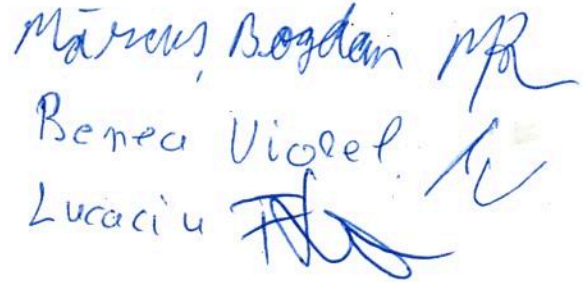 Mărcuș Bogdan
Benea Viorel
Lucaciu